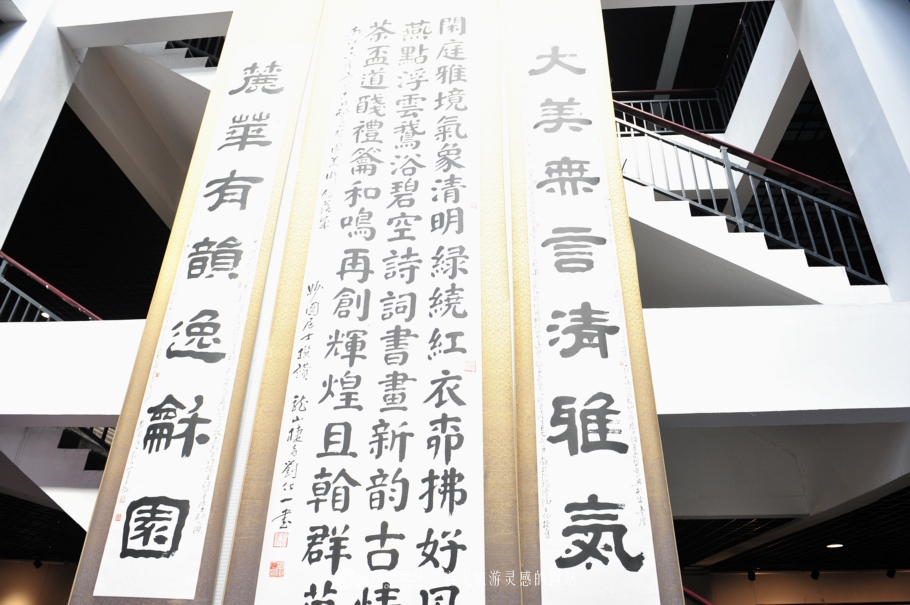 大美無言清雅氣
閑庭雅境氣象清明綠繞紅衣帘拂好風
燕點浮雲鵞浴碧空詩詞書畫新韵古情
茶盃道醆禮龠和鳴再創輝煌且翰群英
妙園居士撰聯 龍山 劉 一書
麓華有韻逸龢園
游灵感的